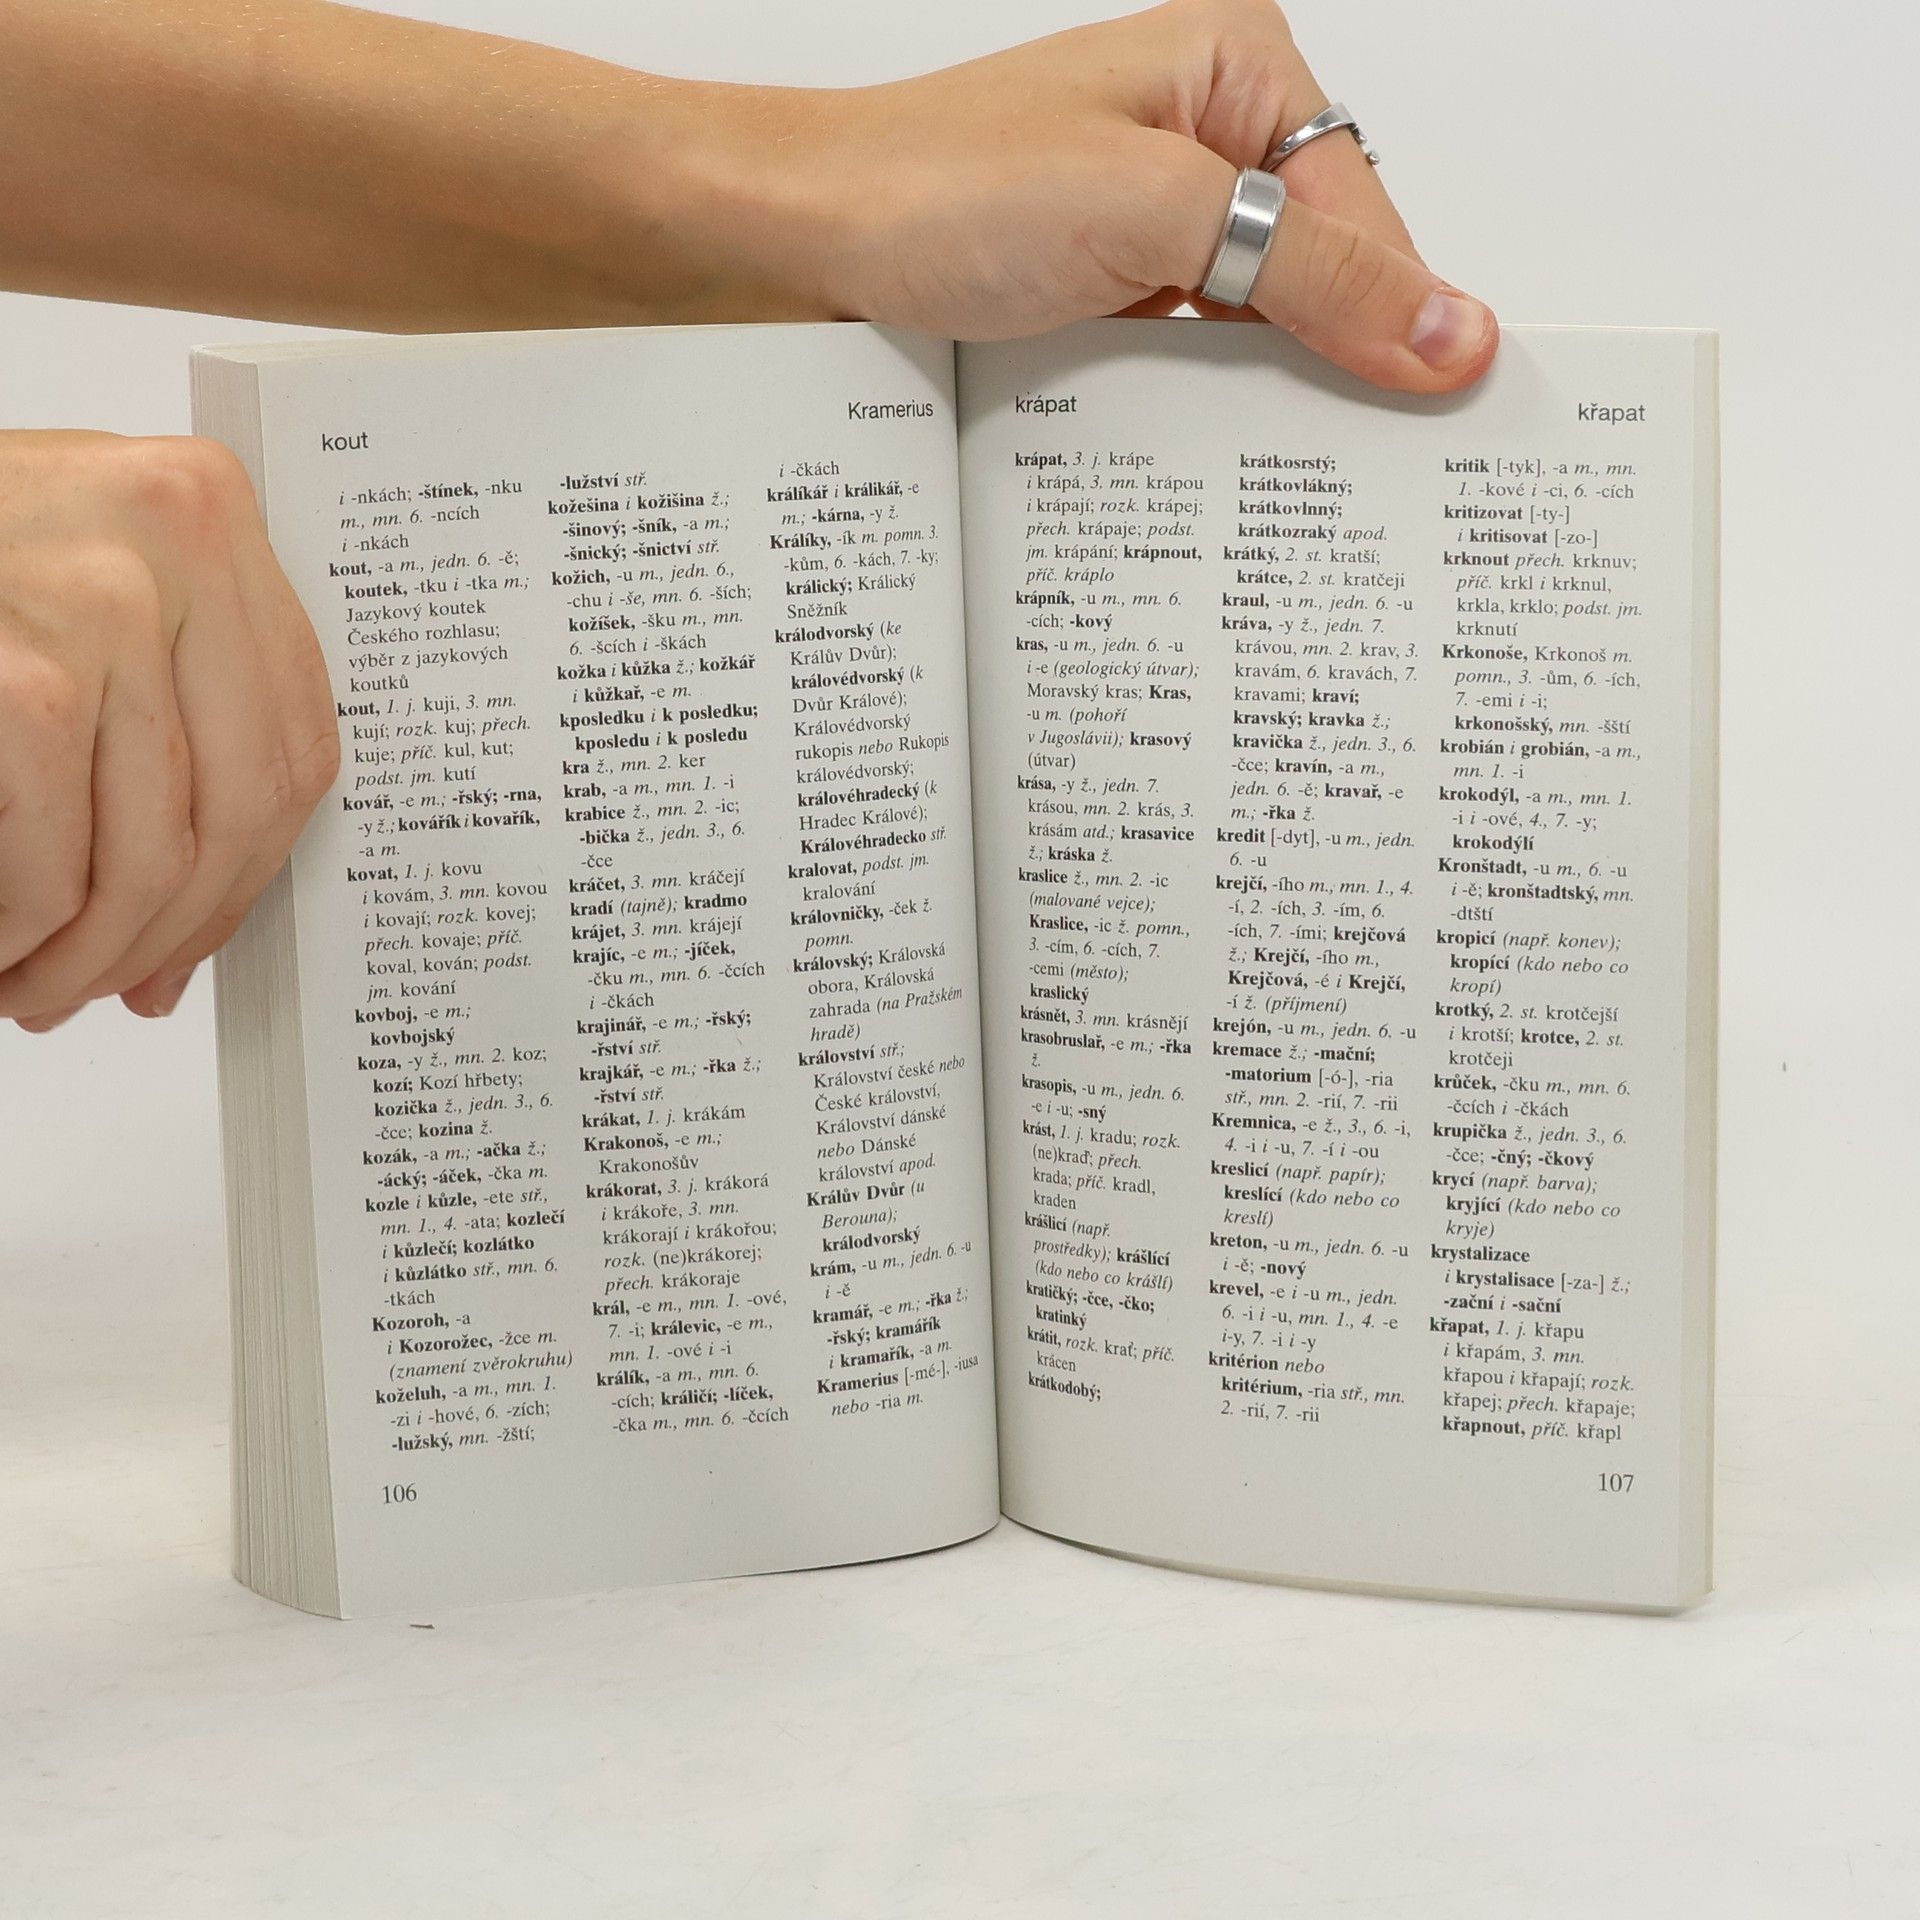 kout
Kramerius
i -nkách; -štínek, -nku
m., mn. 6. -ncích
i -nkách
kout, -a m., jedn. 6. -ě;
koutek, -tku i -tka m.;
Jazykový koutek
Českého rozhlasu;
výběr z jazykových
koutků
kout, 1. j. kuji, 3. mn.
kují; rozk. kuj; přech.
kuje; příč. kul, kut;
podst. jm. kutí
kovář, -e m.; -řský; -rna,
-y ž.; kovářík i kovařík,
-a m.
kovat, 1. j. kovu
i kovám, 3. mn. kovou
i kovají; rozk. kovej;
přech. kovaje; příč.
koval, kován; podst.
jm. kování
kovboj, -e m.;
kovbojský
koza, -y ž., mn. 2. koz;
kozí; Kozí hřbety;
kozička ž., jedn. 3., 6.
-čce; kozina ž.
kozák, -a m.; -ačka ž.;
-ácký; -áček, -čka m.
kozle i kůzle, -ete stř.,
mn. 1., 4. -ata; kozlečí
i kůzlečí; kozlátko
i kůzlátko stř., mn. 6.
-tkách
Kozoroh, -a
i Kozorožec, -žce m.
(znamení zvěrokruhu)
koželuh, -a m., mn. 1.
-zi i -hové, 6. -zích;
-lužský, mn. -žští;
-lužství stř.
kožešina i kožišina ž.;
-šinový; -šník, -a m.;
-šnický; -šnictví stř.
kožich, -u m., jedn. 6.,
-chu i -še, mn. 6. -ších;
kožíšek, -šku m., mn.
6. -šcích i -škách
kožka i kůžka ž.; kožkář
i kůžkař, -e m.
kposledku i k posledku;
kposledu i k posledu
kra ž., mn. 2. ker
krab, -a m., mn. 1. -i
krabice ž., mn. 2. -ic;
-bička ž., jedn. 3., 6.
-čce
kráčet, 3. mn. kráčejí
kradí (tajně); kradmo
krájet, 3. mn. krájejí
krajíc, -e m.; -jíček,
-čku m., mn. 6. -čcích
i -čkách
krajinář, -e m.; -řský;
-řství stř.
krajkář, -e m.; -řka ž.;
-řství stř.
krákat, 1. j. krákám
Krakonoš, -e m.;
Krakonošův
krákorat, 3. j. krákorá
i krákoře, 3. mn.
krákorají i krákořou;
rozk. (ne)krákorej;
přech. krákoraje
král, -e m., mn. 1. -ové,
7. -i; králevic, -e m.,
mn. 1. -ové i -i
králík, -a m., mn. 6.
-cích; králičí; -líček,
-čka m., mn. 6. -čcích
i -čkách
králíkář i králikář, -e
m.; -kárna, -y ž.
Králíky, -ík m. pomn. 3.
-kům, 6. -kách, 7. -ky;
králický; Králický
Sněžník
králodvorský (ke
Králův Dvůr);
královédvorský (k
Dvůr Králové);
Královédvorský
rukopis nebo Rukopis
královédvorský;
královéhradecký (k
Hradec Králové);
Královéhradecko stř.
kralovat, podst. jm.
kralování
královničky, -ček ž.
pomn.
královský; Královská
obora, Královská
zahrada (na Pražském
hradě)
království stř.;
Království české nebo
České království,
Království dánské
nebo Dánské
království apod.
Králův Dvůr (u
Berouna);
králodvorský
krám, -u m., jedn. 6. -u
i -ě
kramář, -e m.; -řka ž.;
-řský; kramářík
i kramařík, -a m.
Kramerius [-mé-], -iusa
nebo -ria m.
106
krápat
křapat
krápat, 3. j. krápe
i krápá, 3. mn. krápou
i krápají; rozk. krápej;
přech. krápaje; podst.
jm. krápání; krápnout,
příč. kráplo
krápník, -u m., mn. 6.
-cích; -kový
kras, -u m., jedn. 6. -u
i -e (geologický útvar);
Moravský kras; Kras,
-u m. (pohoří
v Jugoslávii); krasový
(útvar)
krása, -y ž., jedn. 7.
krásou, mn. 2. krás, 3.
krásám atd.; krasavice
ž.; kráska ž.
kraslice ž., mn. 2. -ic
(malované vejce);
Kraslice, -ic ž. pomn.,
3. -cím, 6. -cích, 7.
-cemi (město);
kraslický
krásnět, 3. mn. krásnějí
krasobruslař, -e m.; -řka
ž.
krasopis, -u m., jedn. 6.
-e i -u; -sný
krást, 1. j. kradu; rozk.
(ne)kraď; přech.
krada; příč. kradl,
kraden
krášlicí (např.
prostředky); krášlící
(kdo nebo co krášlí)
kratičký; -čce, -čko;
kratinký
krátit, rozk. krať; příč.
krácen
krátkodobý;
krátkosrstý;
krátkovlákný;
krátkovlnný;
krátkozraký apod.
krátký, 2. st. kratší;
krátce, 2. st. kratčeji
kraul, -u m., jedn. 6. -u
kráva, -y ž., jedn. 7.
krávou, mn. 2. krav, 3.
kravám, 6. kravách, 7.
kravami; kraví;
kravský; kravka ž.;
kravička ž., jedn. 3., 6.
-čce; kravín, -a m.,
jedn. 6. -ě; kravař, -e
m.; -řka ž.
kredit [-dyt], -u m., jedn.
6. -u
krejčí, -ího m., mn. 1., 4.
-í, 2. -ích, 3. -ím, 6.
-ích, 7. -ími; krejčová
ž.; Krejčí, -ího m.,
Krejčová, -é i Krejčí,
-í ž. (příjmení)
krejón, -u m., jedn. 6. -u
kremace ž.; -mační;
-matorium [-ó-], -ria
stř., mn. 2. -rií, 7. -rii
Kremnica, -e ž., 3., 6. -i,
4. -i i -u, 7. -í i -ou
kreslicí (např. papír);
kreslící (kdo nebo co
kreslí)
kreton, -u m., jedn. 6. -u
i -ě; -nový
krevel, -e i -u m., jedn.
6. -i i -u, mn. 1., 4. -e
i-y, 7. -i i -y
kritérion nebo
kritérium, -ria stř., mn.
2. -rií, 7. -rii
kritik [-tyk], -a m., mn.
1. -kové i -ci, 6. -cích
kritizovat [-ty-]
i kritisovat [-zo-]
krknout přech. krknuv;
příč. krkl i krknul,
krkla, krklo; podst. jm.
krknutí
Krkonoše, Krkonoš m.
pomn., 3. -ům, 6. -ích,
7. -emi i -i;
krkonošský, mn. -šští
krobián i grobián, -a m.,
mn. 1. -i
krokodýl, -a m., mn. 1.
-i i -ové, 4., 7. -y;
krokodýlí
Kronštadt, -u m., 6. -u
i -ě; kronštadtský, mn.
-dtští
kropicí (např. konev);
kropící (kdo nebo co
kropí)
krotký, 2. st. krotčejší
i krotší; krotce, 2. st.
krotčeji
krůček, -čku m., mn. 6.
-čcích i -čkách
krupička ž., jedn. 3., 6.
-čce; -čný; -čkový
krycí (např. barva);
kryjící (kdo nebo co
kryje)
krystalizace
i krystalisace [-za-] ž.;
-zační i -sační
křapat, 1. j. křapu
i křapám, 3. mn.
křapou i křapají; rozk.
křapej; přech. křapaje;
křapnout, příč. křapl
107